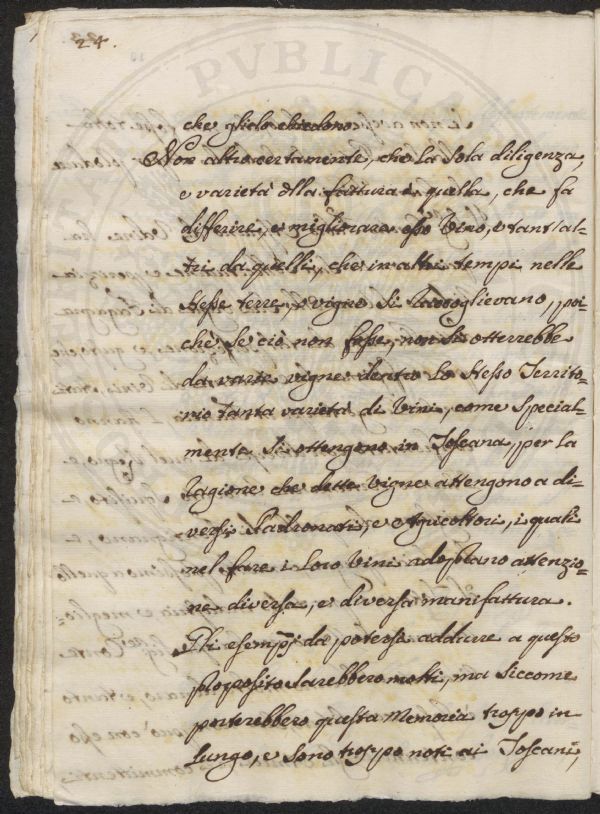 24.
che glielo chiedono.
Non altro certamente, che la sola diligenza,
e varietà dlla fattura è quella, che fa
differire, e migliorare esso Vino, e tant'al-
tri da quelli, che in altri tempi nelle
stesse terre, e vigne si raccoglievano, poi-
chè se ciò non fosse, non si otterrebbe
da varie vigne dentro lo stesso Territo-
rio tanta varietà di Vini, come special-
mente si ottengono in Toscana, per la
ragione che dette Vigne attengono a di-
versi Padronati, e Agricoltori, i quali
nel fare i loro Vini adoprano attenzio-
ne diversa, e diversa manifattura.
Gli esempj da potersi addurre a questo
proposito sarebbero molti, ma siccome
porterebbero questa Memoria troppo in
lungo, e sono troppo noti ai Toscani,
PVBLICA